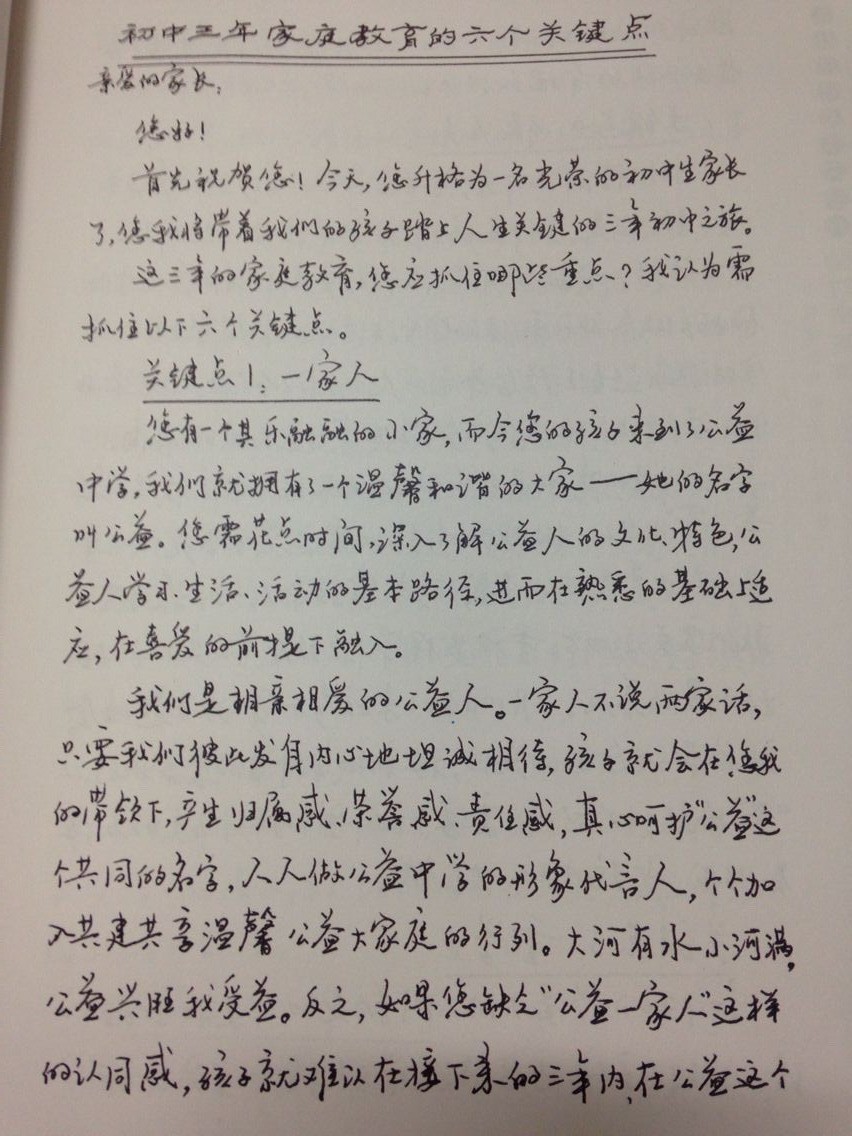 初中三年家庭教育的六个关键点
亲爱的家长:
您好!
首先祝贺您!今天,您升格为一名光荣的初中生家长
了,您我将带着我们的孩子踏上人生关键的三年初中之旅。
这三年的家庭教育,您应抓住哪些重点?我认为需
抓住以下六个关键点。
关键点1:一家人
您有一个其乐融融的小家,而今您的孩子来到了公益
中学,我们就拥有了一个温馨和谐的大家——她的名字
叫公益。您需花点时间,深入了解公益人的文化、特色,公
益人学习、生活、活动的基本路径,进而在熟悉的基础上适
应,在喜爱的前提下融入。
我们是相亲相爱的公益人。一家人不说两家话,
只要我们彼此发自内心地坦诚相待,孩子就会在您我
的带领下,产生归属感、荣誉感、责任感,真心呵护“公益”这
个共同的名字,人人做公益中学的形象代言人,个个加
入共建共享温馨公益大家庭的行列。大河有水小河满,
公益兴旺我受益。反之,如果您缺乏“公益一家人”这样
的认同感,孩子就难以在接下来的三年内,在公益这个